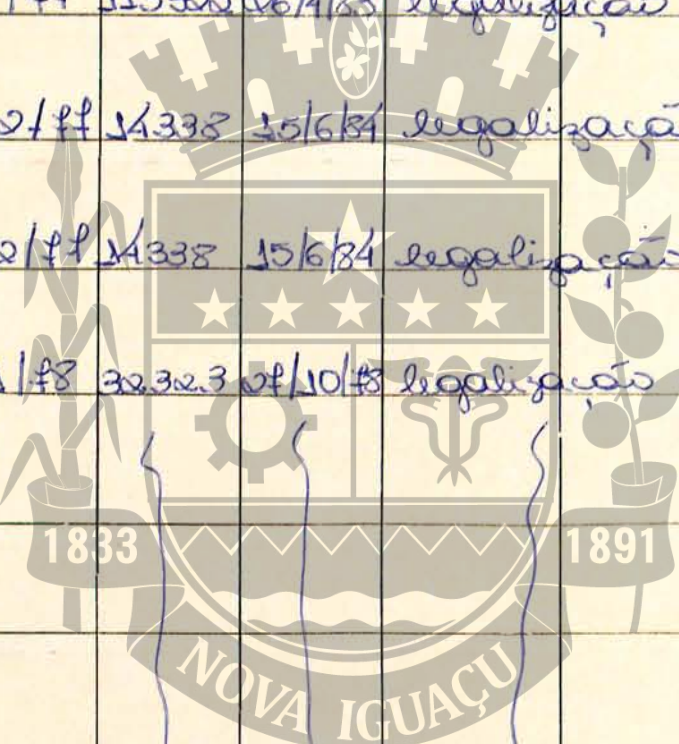 legalização
2/77 14338 15/6/84 legalizaçã
2/77 14338 15/6/84 legalização
1/78 32.323 27/10/78 legalização
1833 1891
NOVA IGUAÇU